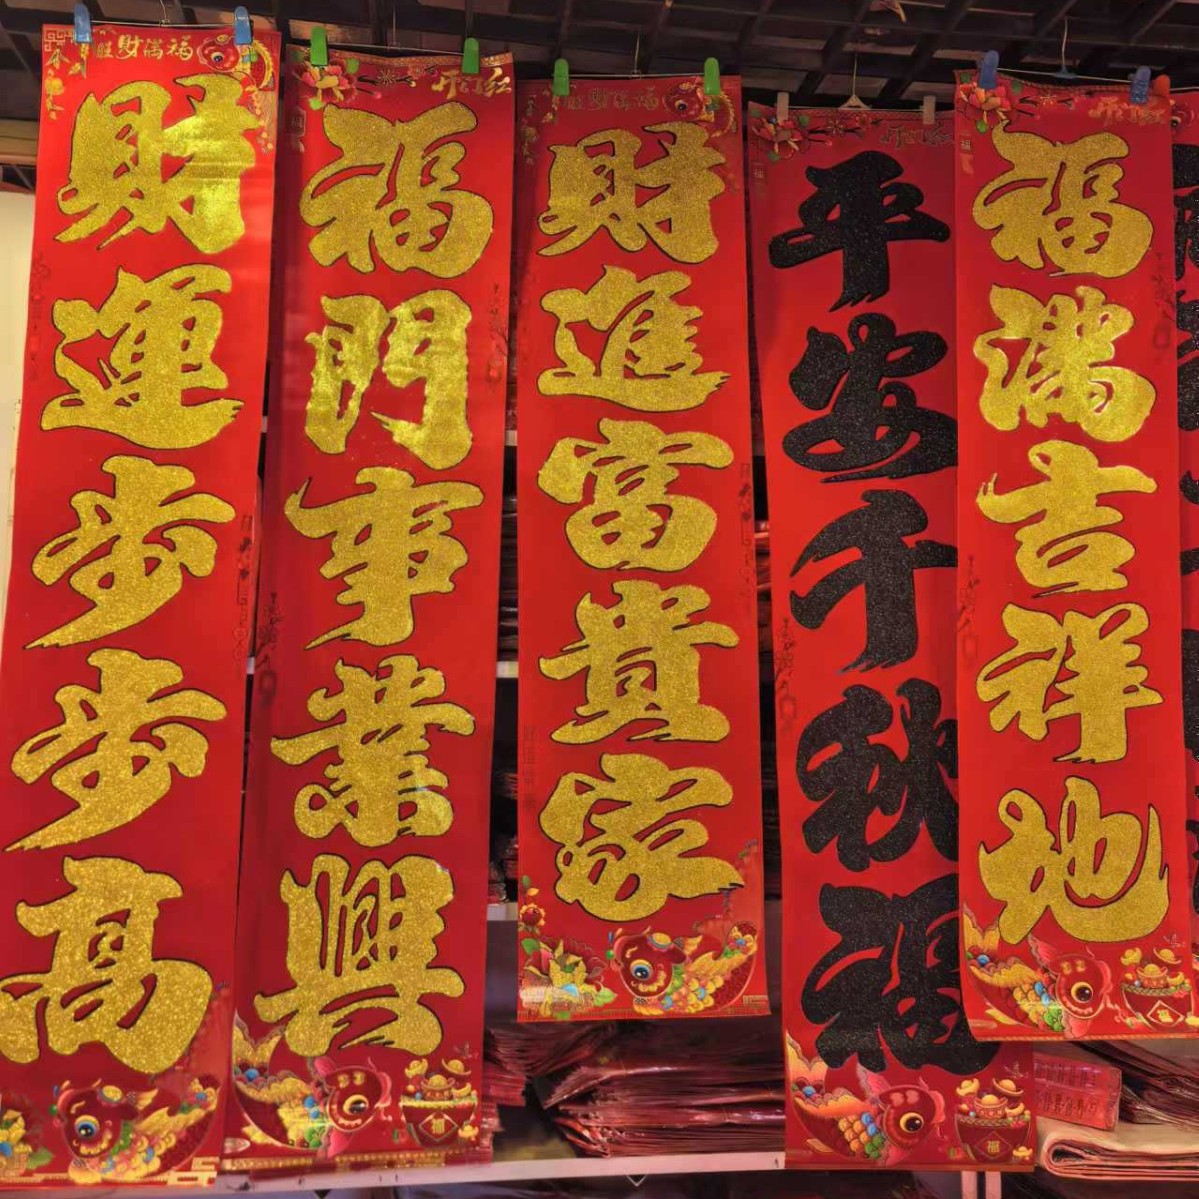 財運步步高
福門事業興
財進富貴家
平安千秋福
福滿吉祥地
旺財滿福
旺財滿福
福
福